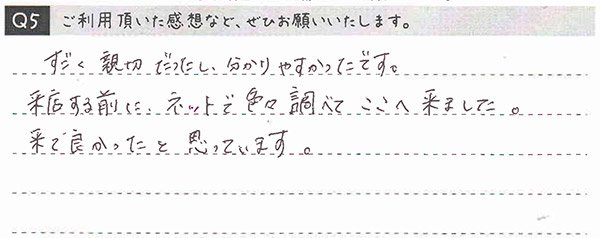 Q5 ご利用頂いた感想など、ぜひお願いいたします。
すごく親切だったし、分かりやすかったです。
来店する前に、ネットで色々調べてここへ来ました。
来て良かったと思っています。